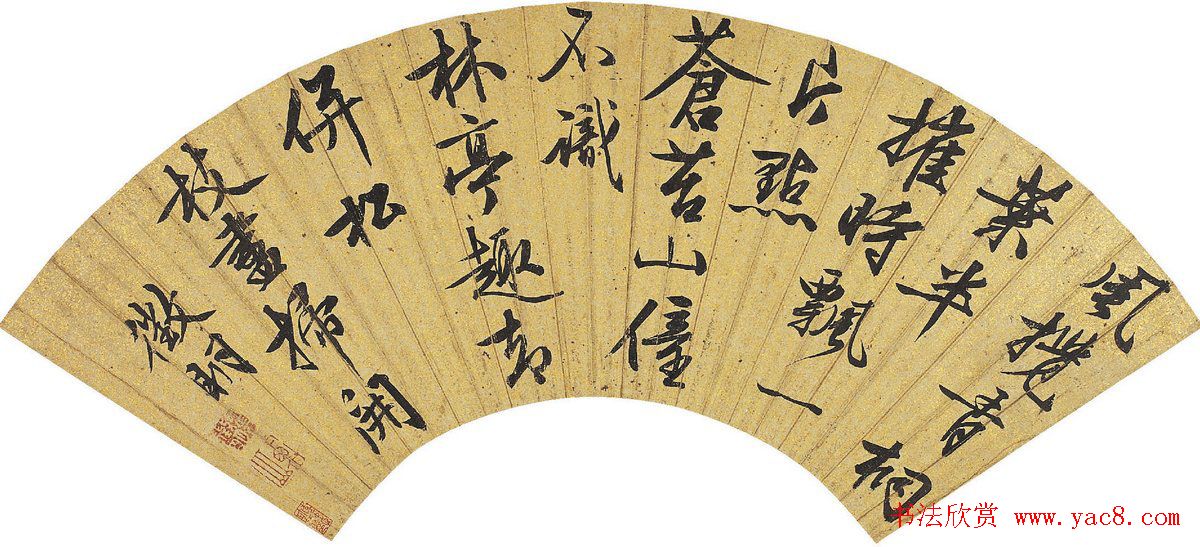 風攪青桐
葉半
摧時飄一
片點
蒼苔山僮
不識
林亭趣却
併松
枝盡掃開
徵明
书法欣赏 www.yac8.com